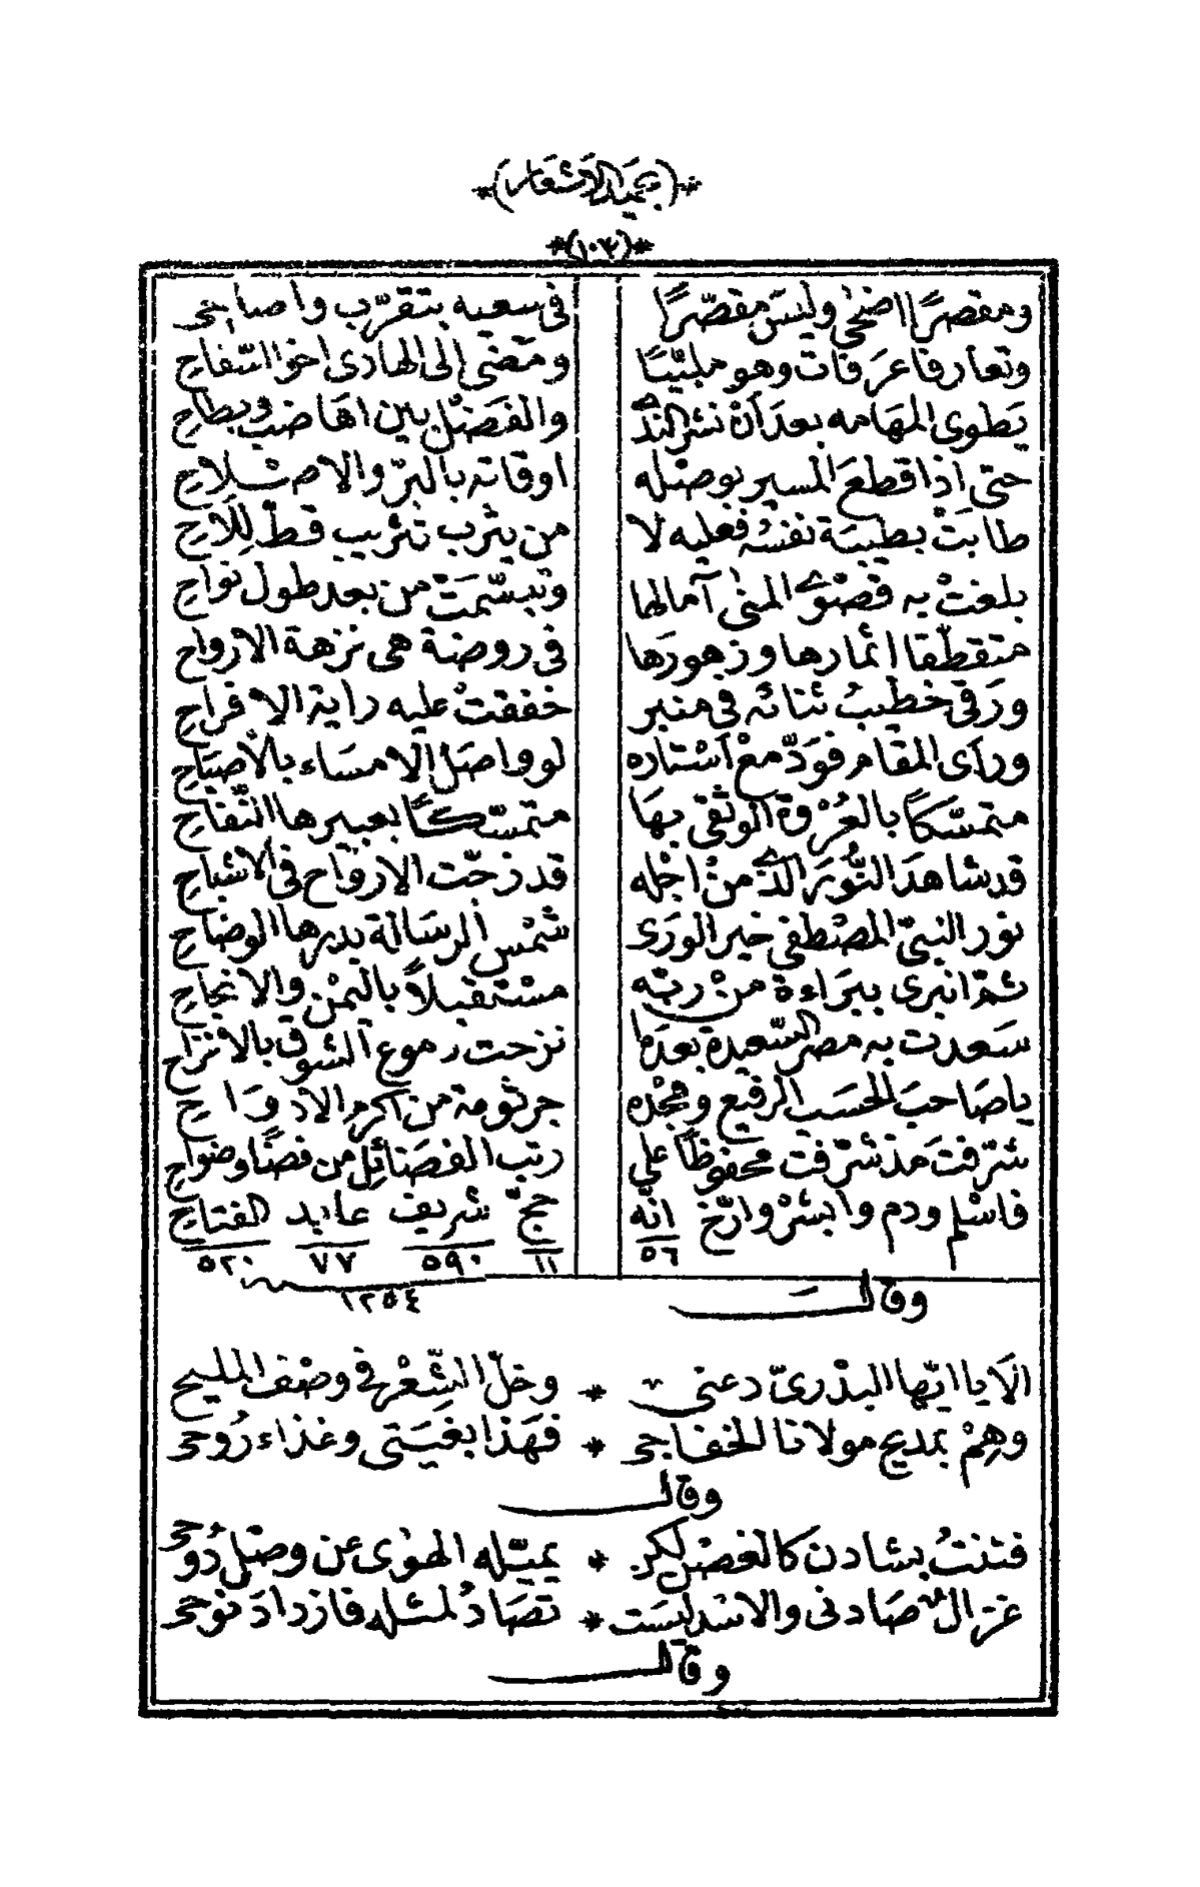 *(بجيد الاشعار)*
*(١٠٣)*
ومقصرًا اضحى وليس مقصّرًا في سعيه بتقرّب واضاحي
وتعارفا عرفات وهو ملبّيًا ومضى الى الهادى اخو السّفاح
يَطوى المهامه بعد أنْ نشر الندى والفضل بين اهاضب وبطاح
حتى اذا قطعَ المسير بوصله اوقاته بالبرّ والاصلاح
طابتْ بطيبَة نفسُه فعليه لا من يثرب تثريب قطّ لِلَاحِ
بلغتْ به قصْوى المنى آمالها وتبسّمتْ من بعد طول نواح
متقطّفا اثمارها وزهورَها في روضة هى نزهة الارواح
ورَقى خطيبُ ثنائه في منبر خفقتْ عليه راية الافراح
ورأى المقام فودّ معْ أسْتاره لو واصل الامسَاء بالاصبَاح
متمسّكًا بالعُرْوة الوثقى بهَا متمسّكًا بعبيرها النّفاح
قد شاهدَ النُّورَ الذى منْ اجْله قد زحّت الارواح فى الاشباح
نور النبىّ المصْطفى خير الورَى شمْس الرسَالة بدرها الوضاح
ثمّ انبرى ببَراءة منْ ربّه مسْتقبلاً باليمْن والانجاح
سَعدت به مصر السّعيدة بعدَما نزحت دموع الشوق بالانزاح
ياصَاحبَ الحسَب الرفيع ومجْده جرثومة من اكرم الادواح
شرّفتَ مذ شرّفت محفوظًا على رتب الفضائل من فضًا وضواح
فاسْلم ودم وابشرْ وارّخ انّه حجّ شريف عابد الفتاح
٥٦ ١١ ٥٩٠ ٧٧ ٥٢٠
١٢٥٤
وقالَ
الَا يا ايّها البدْرىّ دعنى * وخلّ الشّعْر في وصْف المليح
وهِمْ بمديح مولانا الخفاجى * فهَذا بغيَتى وغذاء رُوحى
وقال
فتنتُ بشادن كالغصْن لكن * يميّله الهوٰى عن وصْل دُوحى
غزال صَادنى والاسْد ليسَت * تصَادُ لمثله فازدادَ نوحى
وقال